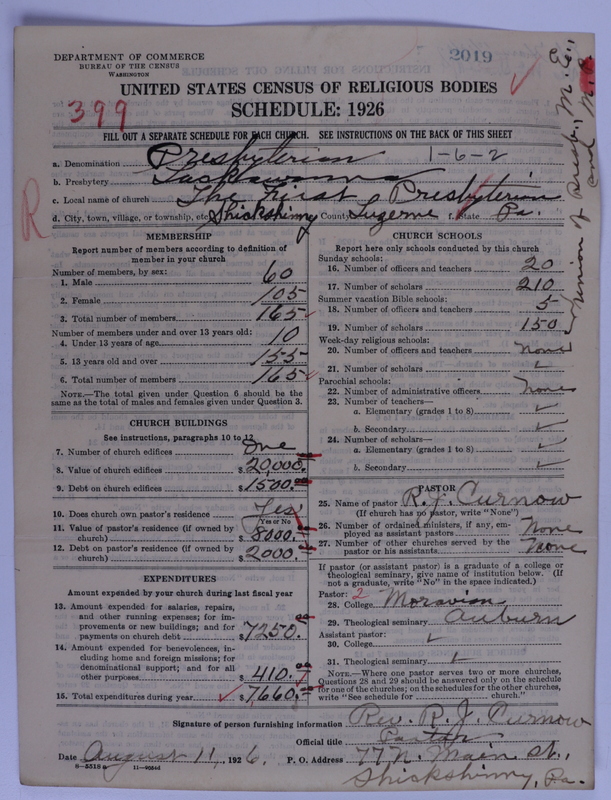 DEPARTMENT OF COMMERCE
BUREAU OF THE CENSUS
WASHINGTON
2019
UNITED STATES CENSUS OF RELIGIOUS BODIES
399
SCHEDULE: 1926
FILL OUT A SEPARATE SCHEDULE FOR EACH CHURCH. SEE INSTRUCTIONS ON THE BACK OF THIS SHEET
a. Denomination Presbyterian 1-6-2
b. Presbytery Lackawanna
c. Local name of church The First Presbyterian
d. City, town, village, or township, etc. Shickshinny County Luzerne State Pa.
R
Union of Presb., M.E., and
MEMBERSHIP
Report number of members according to definition of
member in your church
Number of members, by sex:
1. Male 60
2. Female 105
3. Total number of members 165
Number of members under and over 13 years old:
4. Under 13 years of age 10
5. 13 years old and over 155
6. Total number of members 165
NOTE.—The total given under Question 6 should be
same as the total of males and females given under Question 3.
CHURCH BUILDINGS
See instructions, paragraphs 10 to 12
7. Number of church edifices One
8. Value of church edifices $20,000.
9. Debt on church edifices $1500.00
10. Does church own pastor's residence? Yes
Yes or No
11. Value of pastor's residence (if owned by
church) $8000.00
12. Debt on pastor's residence (if owned by
church) $2000.00
EXPENDITURES
Amount expended by your church during last fiscal year
13. Amount expended for salaries, repairs,
and other running expenses; for im-
provements or new buildings; and for
payments on church debt $7250.00
14. Amount expended for benevolences, in-
cluding home and foreign missions; for
denominational support; and for all
other purposes $410.00
15. Total expenditures during year $7660.00
CHURCH SCHOOLS
Report here only schools conducted by this church
Sunday schools:
16. Number of officers and teachers 20
17. Number of scholars 210
Summer vacation Bible schools:
18. Number of officers and teachers 5
19. Number of scholars 150
Week-day religious schools:
20. Number of officers and teachers None
21. Number of scholars ✓
Parochial schools:
22. Number of administrative officers None
23. Number of teachers—
a. Elementary (grades 1 to 8) ✓
b. Secondary ✓
24. Number of scholars—
a. Elementary (grades 1 to 8) ✓
b. Secondary ✓
PASTOR
25. Name of pastor R.J. Curnow
(If church has no pastor, write "None")
26. Number of ordained ministers, if any, em-
ployed as assistant pastors None
27. Number of other churches served by the
pastor or his assistants None
If pastor (or assistant pastor) is a graduate of a college or
theological seminary, give name of institution below. (If
not a graduate, write "No" in the space indicated.)
Pastor: 2
28. College Moravian
29. Theological seminary Auburn
Assistant pastor:
30. College ✓
31. Theological seminary ✓
NOTE.—Where one pastor serves two or more churches,
Questions 28 and 29 should be answered only on the schedule
for one of the churches; on the schedules for the other churches,
write "See schedule for church."
Signature of person furnishing information Rev. R. J. Curnow
Official title Pastor
Date August 11, 1926. P. O. Address 77 N. Main St.,
Shickshinny, Pa.
8-5515a